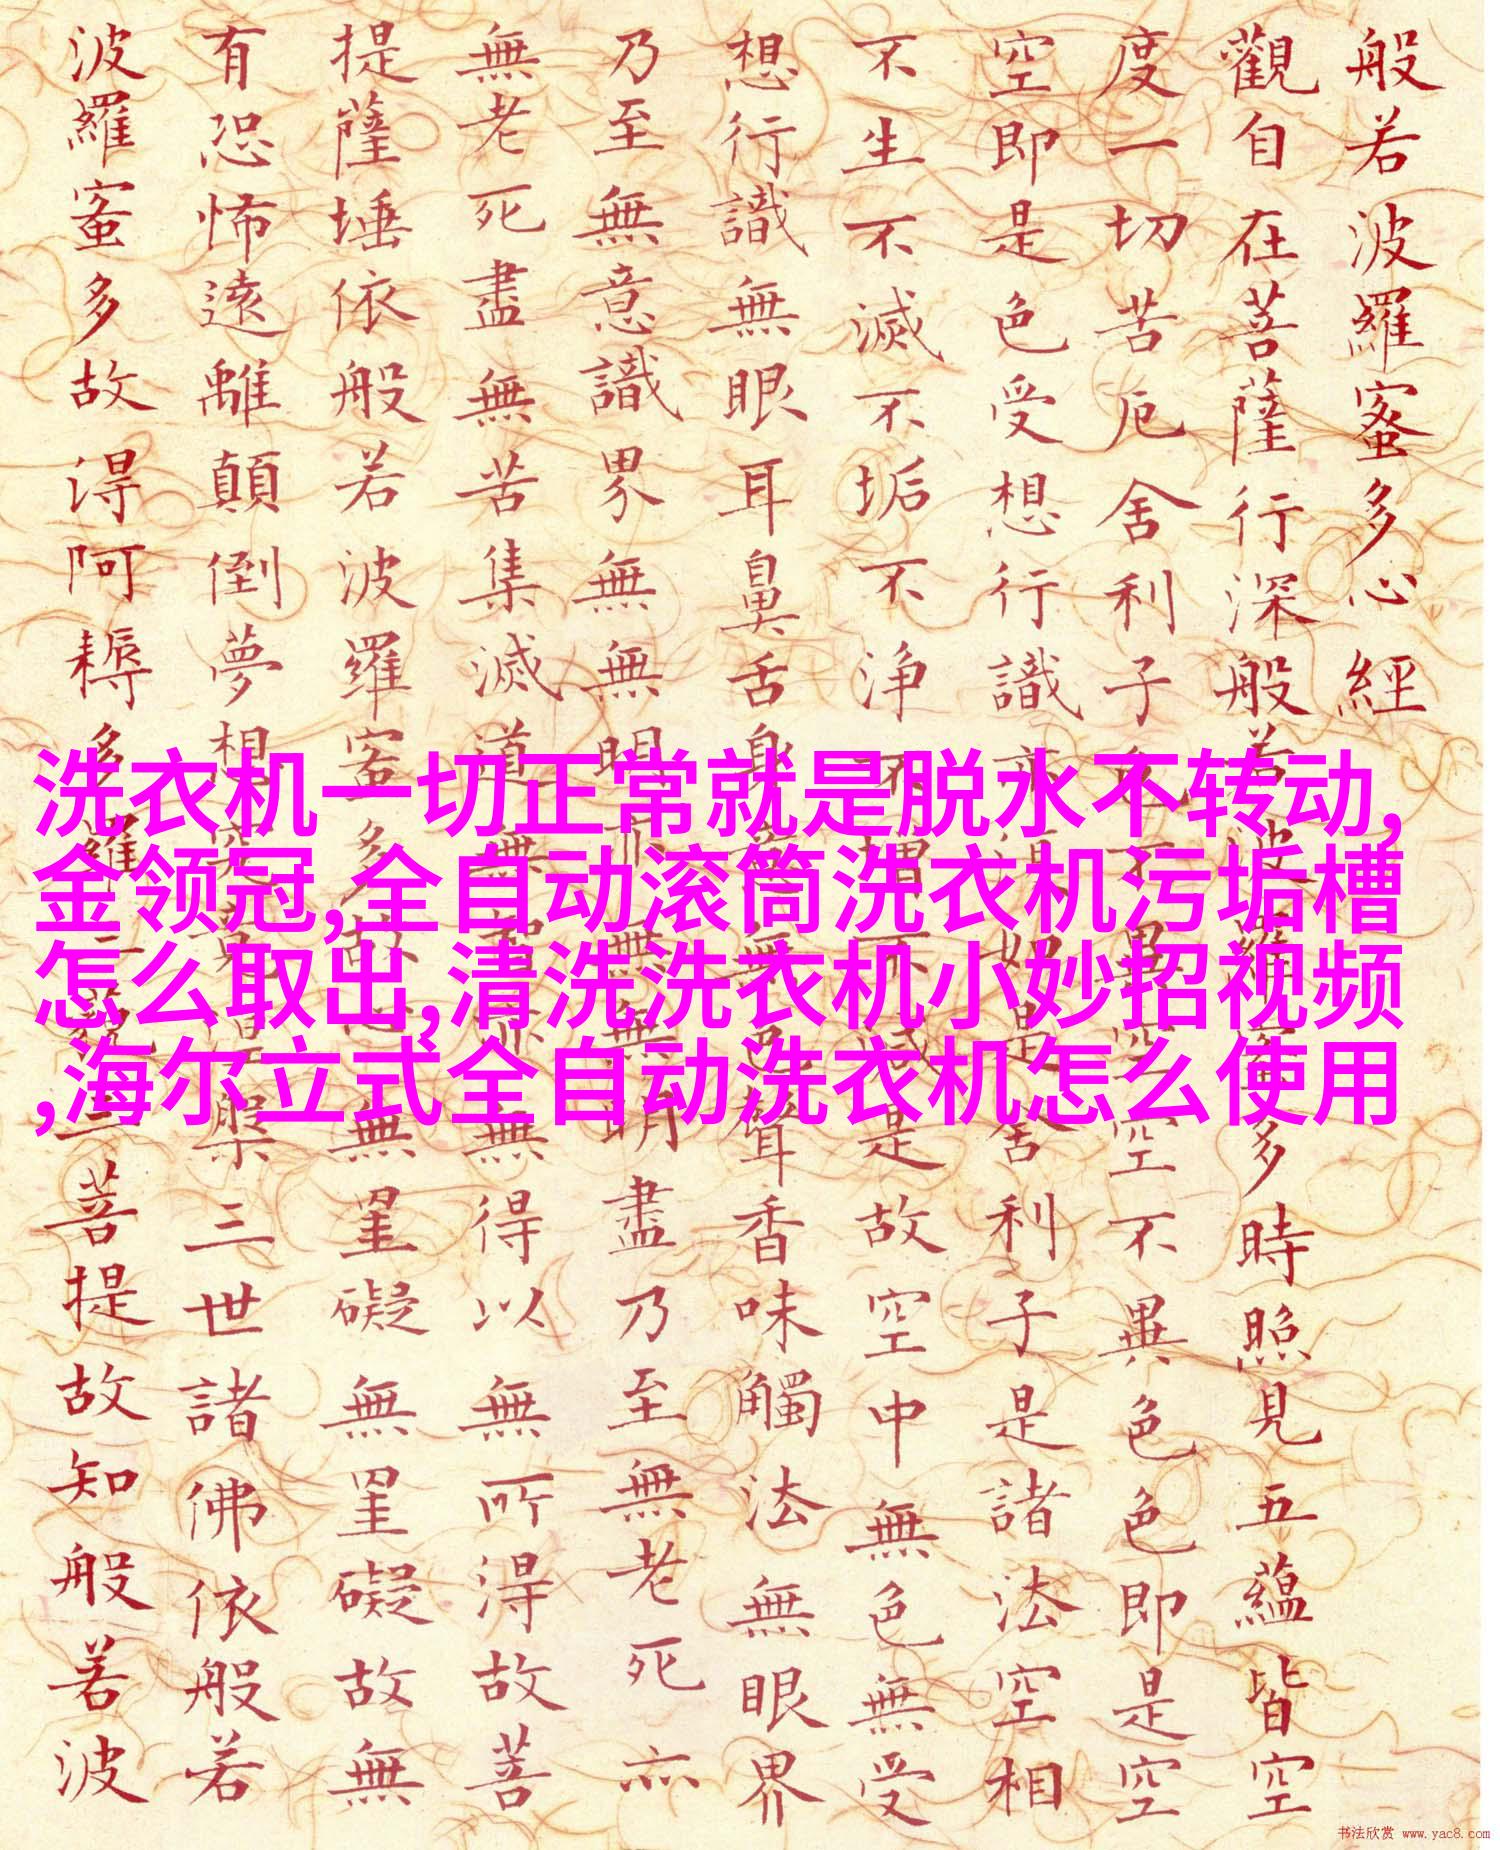 般若波羅蜜多心經
觀自在菩薩行深般若波羅蜜多時照見五蘊皆空
度一切苦厄舍利子色不異空空不異色色即是空
空即是色受想行識亦復如是舍利子是諸法空相
不生不滅不垢不浄不增不減是故空中無色無受
想行識無眼耳鼻舌身意無色聲香味觸法無眼界
乃至無意識界無無明亦無無明盡乃至無老死亦
無老死盡無苦集滅道無智亦無得以無所得故菩
提薩埵依般若波羅蜜多故心無罣礙無罣礙故無
有恐怖遠離顛倒夢想究竟涅槃三世諸佛依般若
波羅蜜多故得阿耨多羅三藐三菩提故知般若波
洗衣机一切正常就是脱水不转动,
金领冠,全自动滚筒洗衣机污垢槽
怎么取出,清洗洗衣机小妙招视频
,海尔立式全自动洗衣机怎么使用
书法欣赏 www.yac8.com